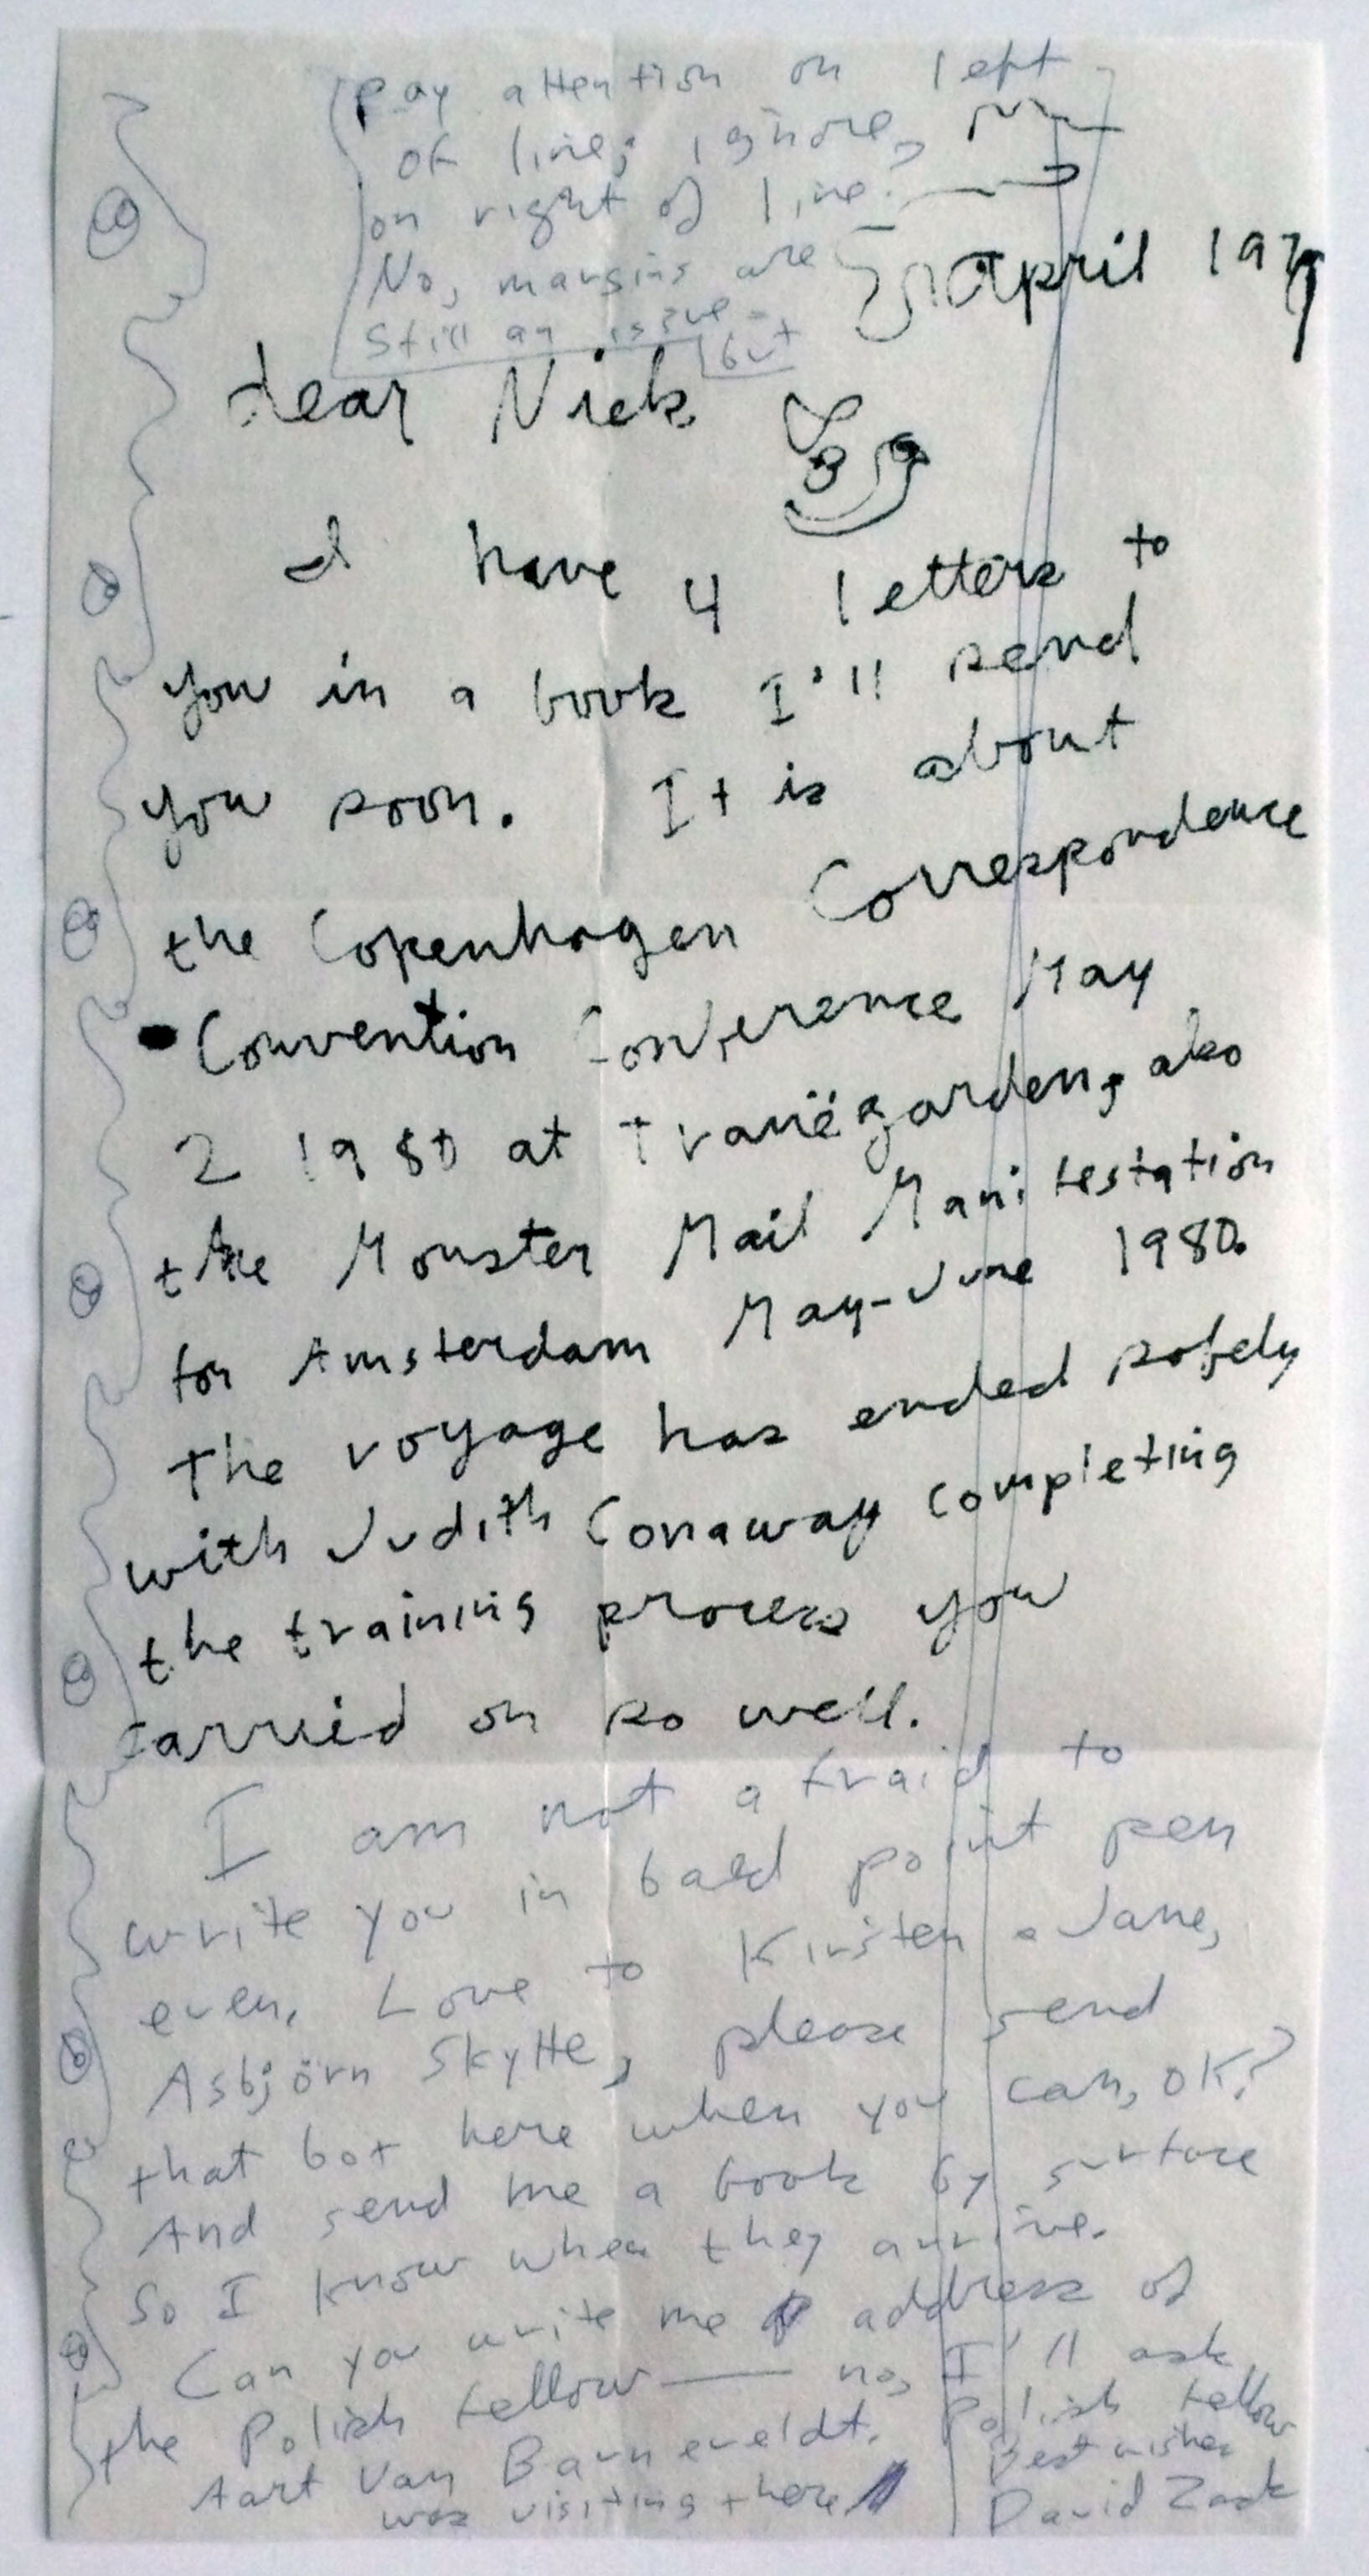 Pay attention on left
of line; ignore,
on right of line.
No, margins are
still an issue -
but
April 1979
dear Nick
I have 4 letters to
you in a book I'll send
you soon. It is about
the Copenhagen Correspondence
Convention Conference May
2 1980 at Tranegarden, also
the Monster Mail Manifestation
for Amsterdam May-June 1980.
The voyage has ended safely
with Judith Conaway completing
the training process you
carried on so well.
I am not afraid to
write you in ball point pen
even. Love to Kirsten, Jane,
Asbjörn Skytte, please send
that box here when you can, OK?
And send me a book by surface
so I know when they arrive.
Can you write me address of
the Polish fellow — no, I'll ask
Aart Van Barneveldt. Polish fellow
was visiting there
Best wishes
David Zack